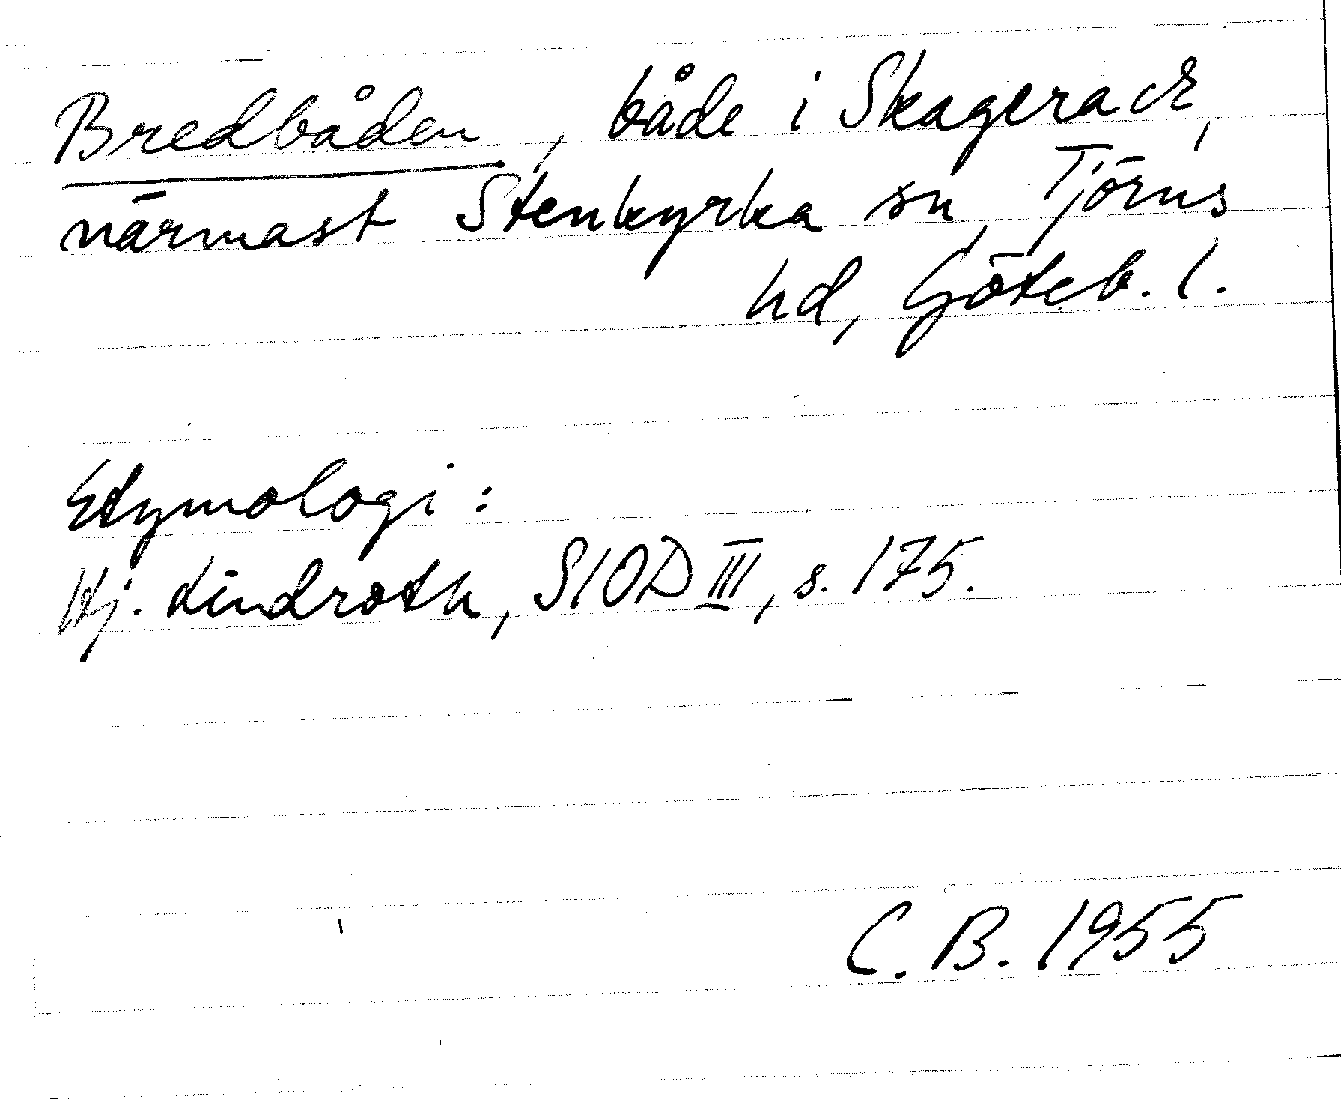 Bredbåden, både i Skagerack,
närmast Stenkyrka sn, Tjörns
hd, Göteb. l.
Etymologi:
Hj. Lindroth, SIOD III, s. 175.
C. B. 1955